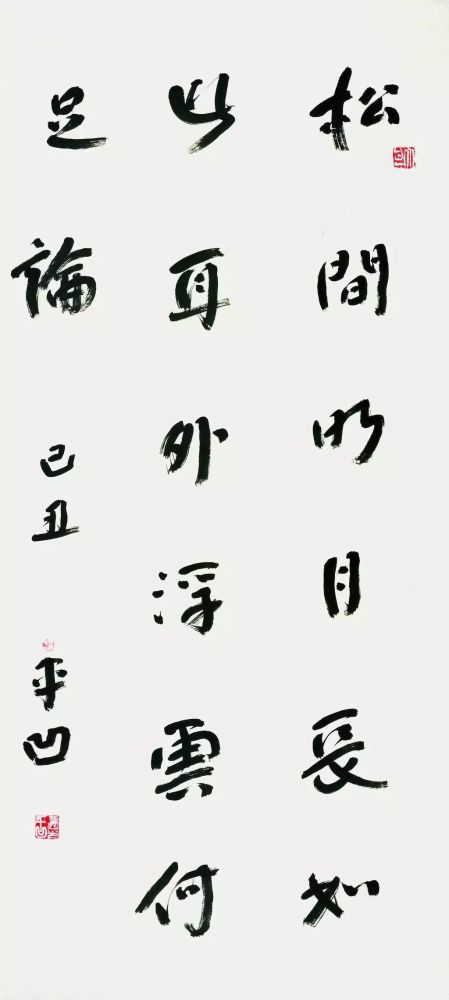 松間明月長如
此耳外浮雲何
足論
己丑
平凹